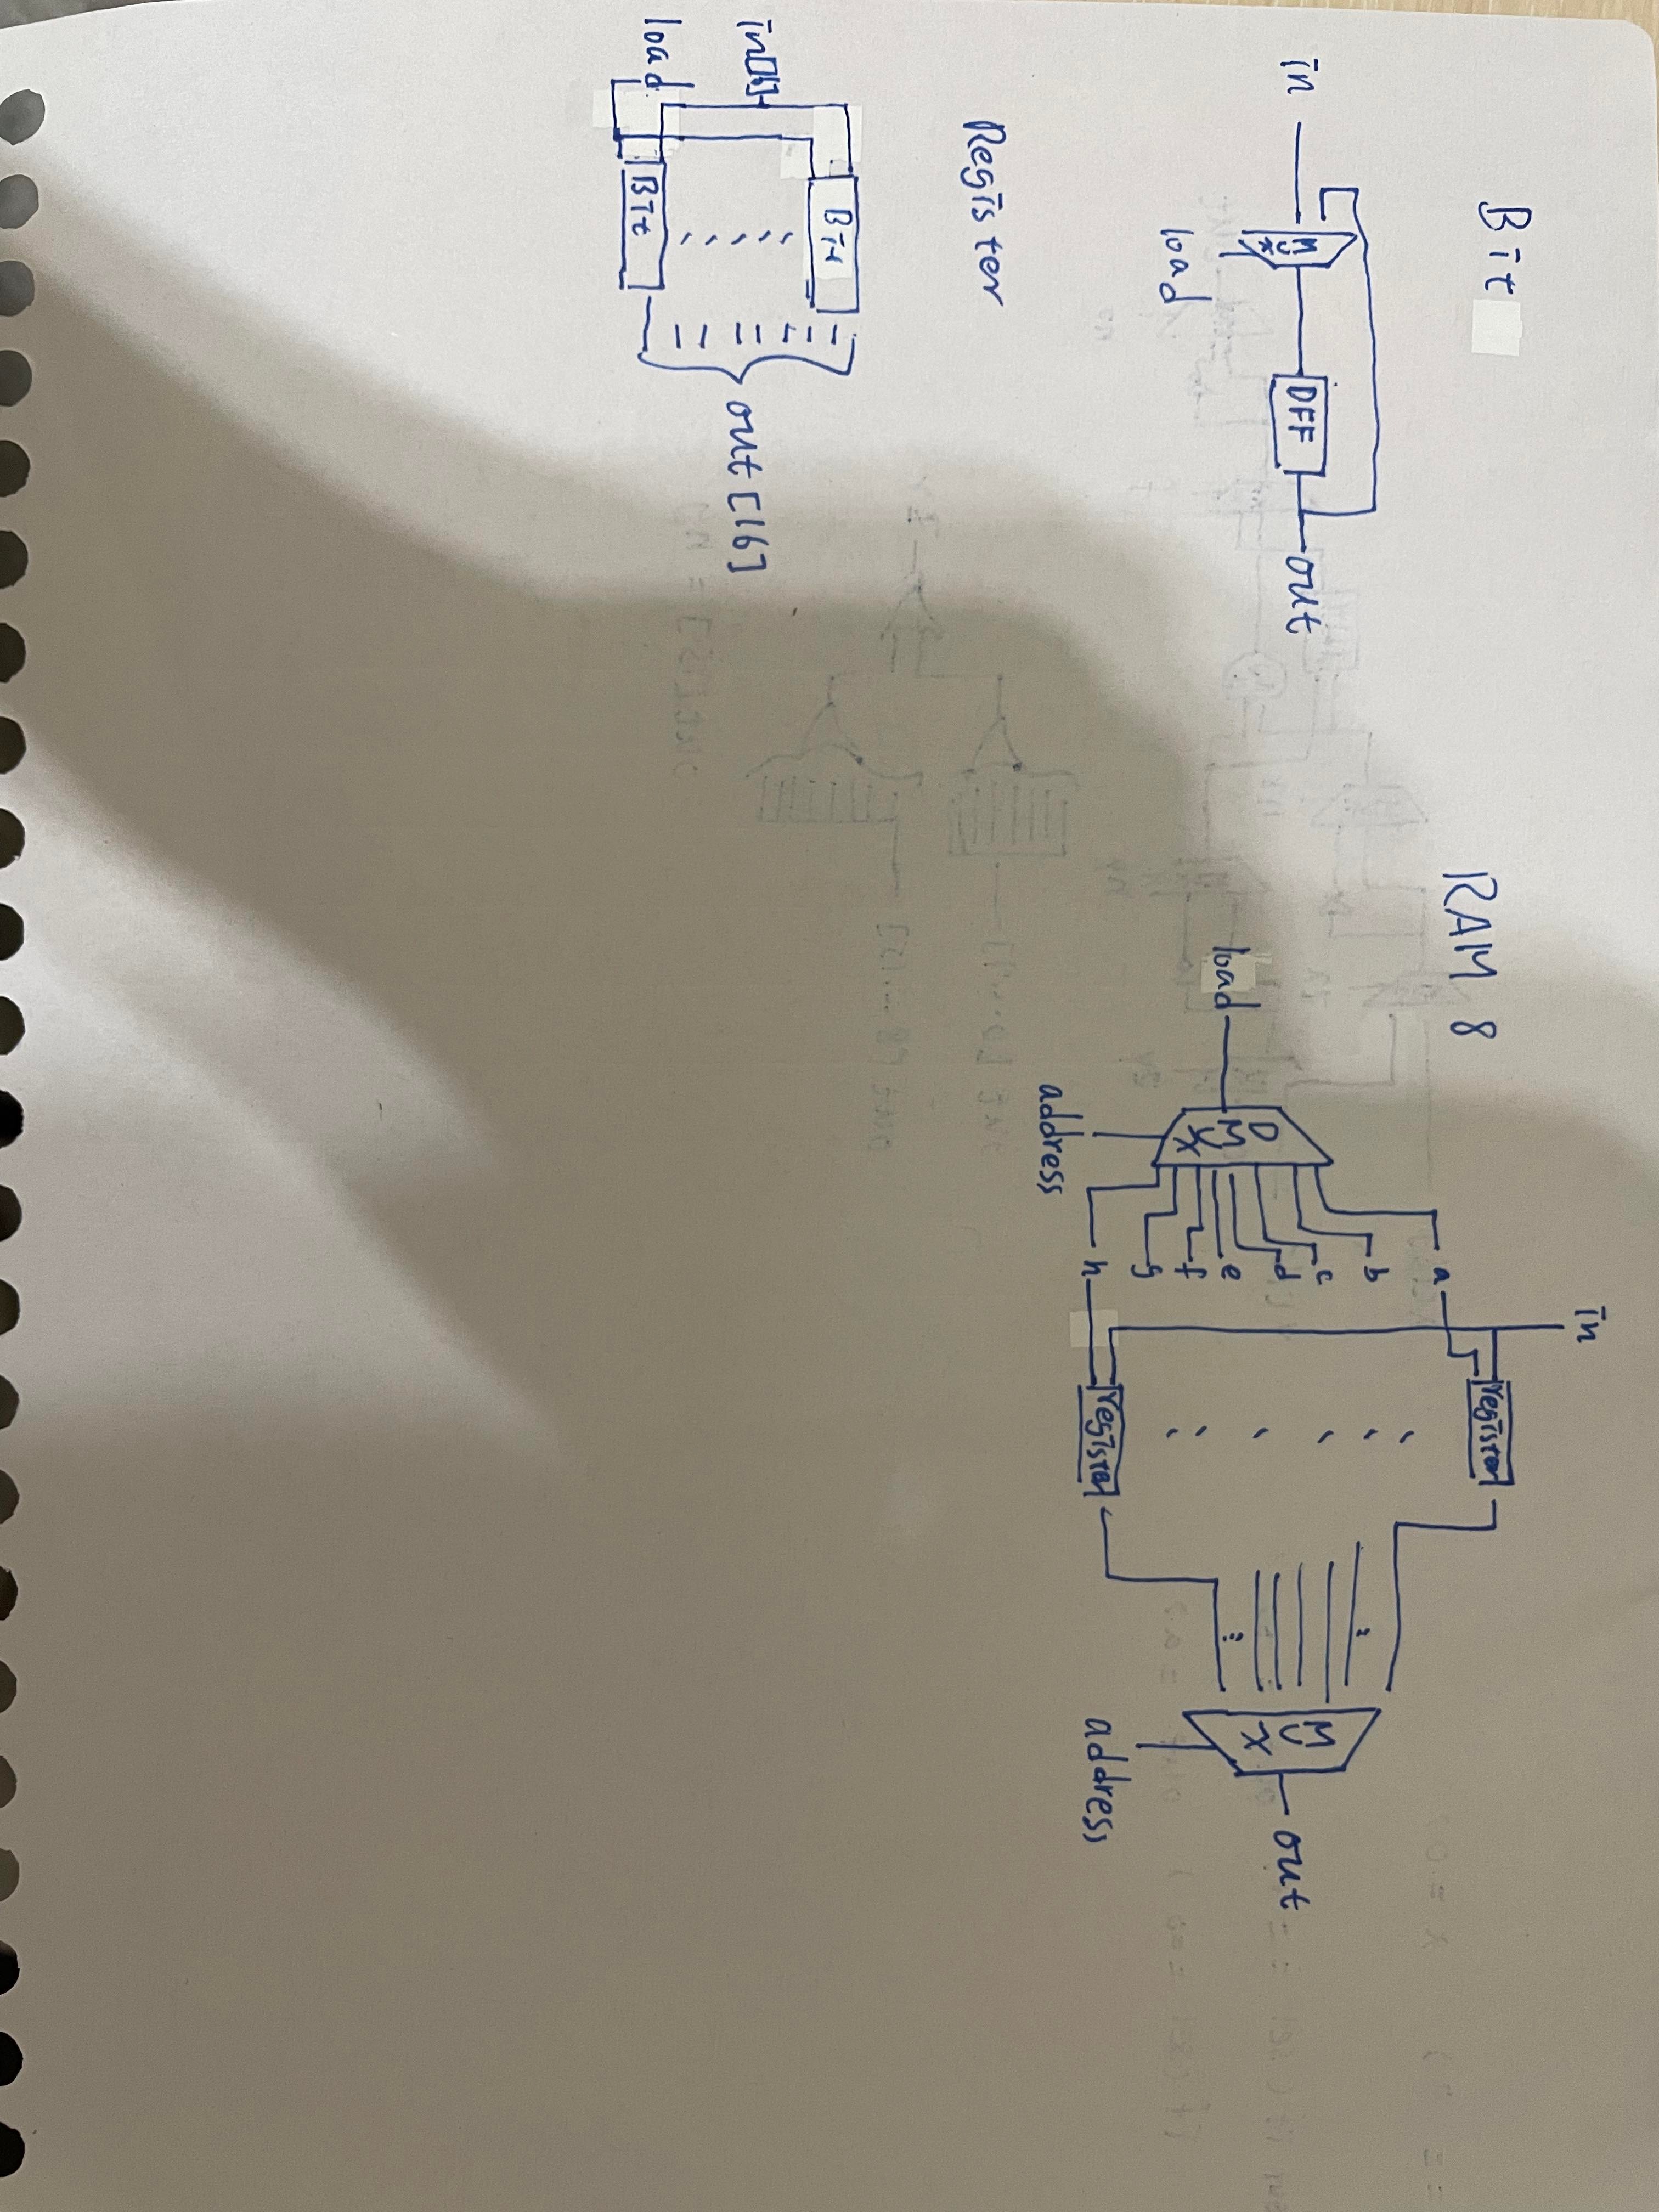 Bit
in
MUX
load
DFF
out
Register
in[16]
load
Bit
Bit
out[16]
RAM 8
in
load
DMUX
address
a
b
c
d
e
f
g
h
register
register
MUX
address
out